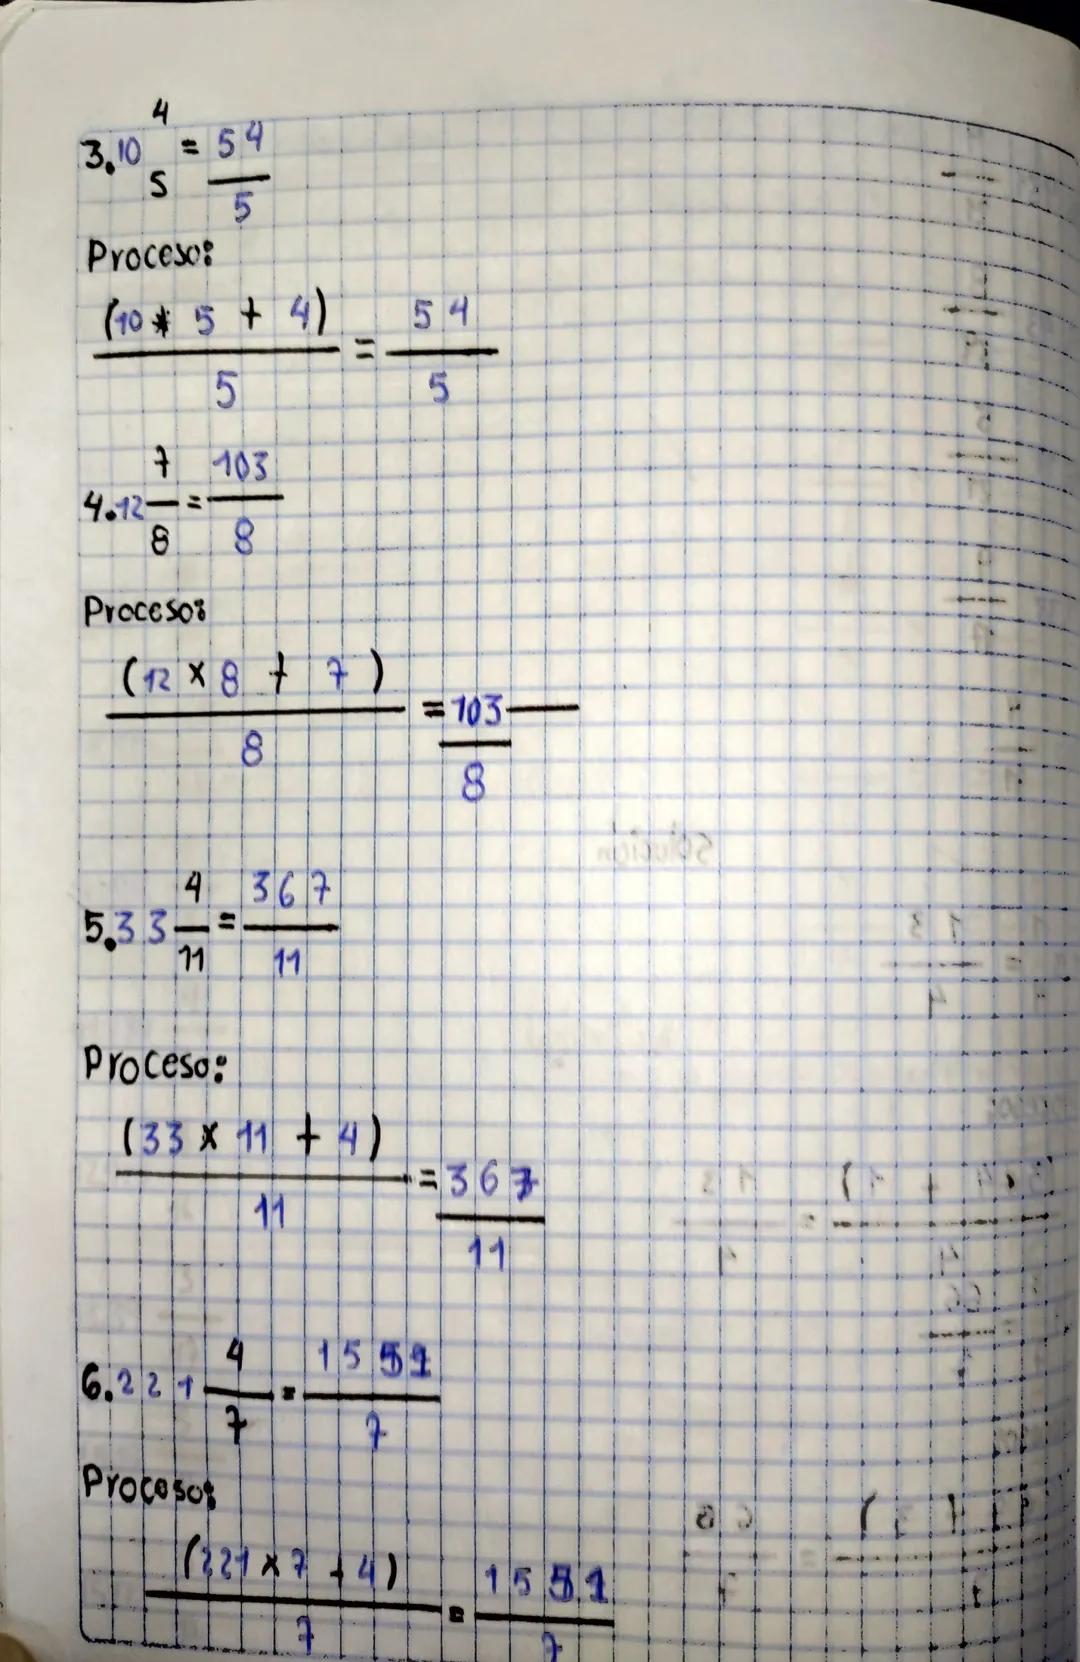 3. 10 4/5 = 54/5
Proceso:
(10 * 5 + 4)/5 = 54/5
4. 12 7/8 = 103/8
Proceso:
(12 × 8 + 7)/8 = 103/8
5. 33 4/11 = 367/11
Proceso:
(33 × 11 + 4)/11 = 367/11
6. 221 4/7 = 1551/7
Proceso:
(221 × 7 + 4)/7 = 1551/7